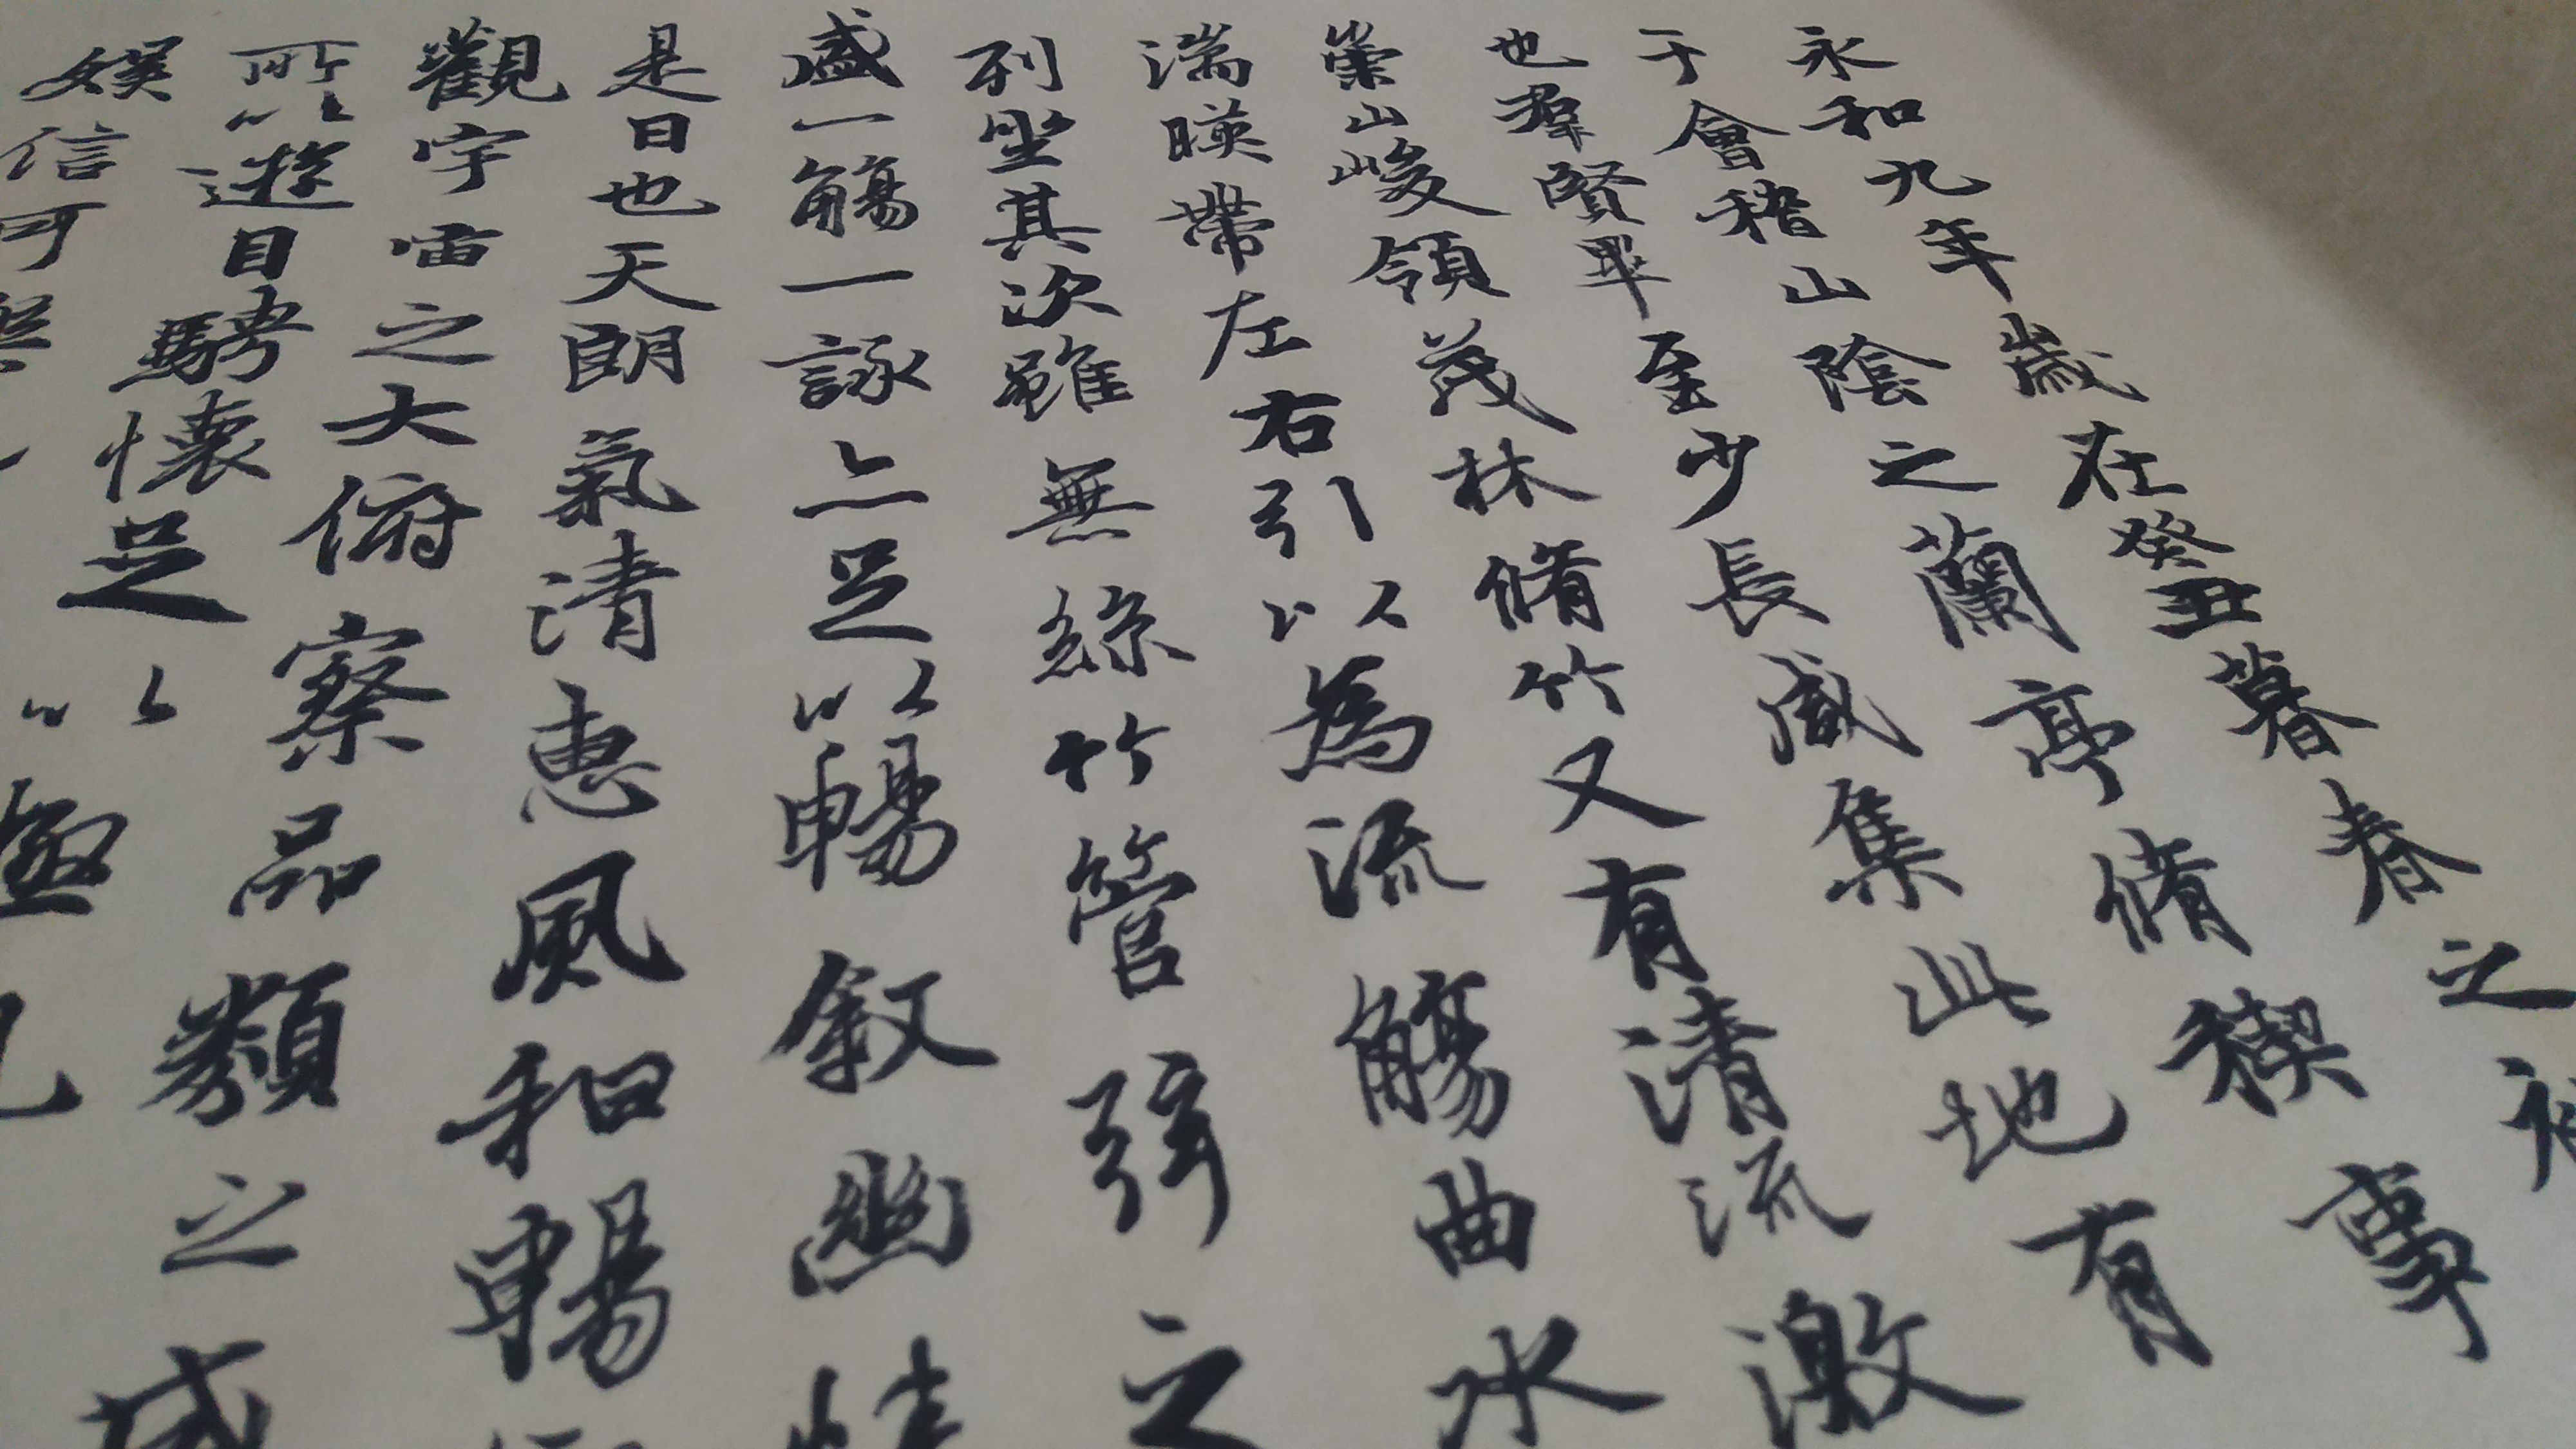 永和九年歲在癸丑暮春之初
于會稽山陰之蘭亭脩稧事
也羣賢畢至少長咸集此地有
崇山峻領茂林脩竹又有清流激
湍暎帶左右引以為流觴曲水
列坐其次雖無絲竹管弦之
盛一觴一詠亦足以暢敘幽情
是日也天朗氣清惠風和暢
觀宇宙之大俯察品類之盛
所以遊目騁懷足以極
娛信可